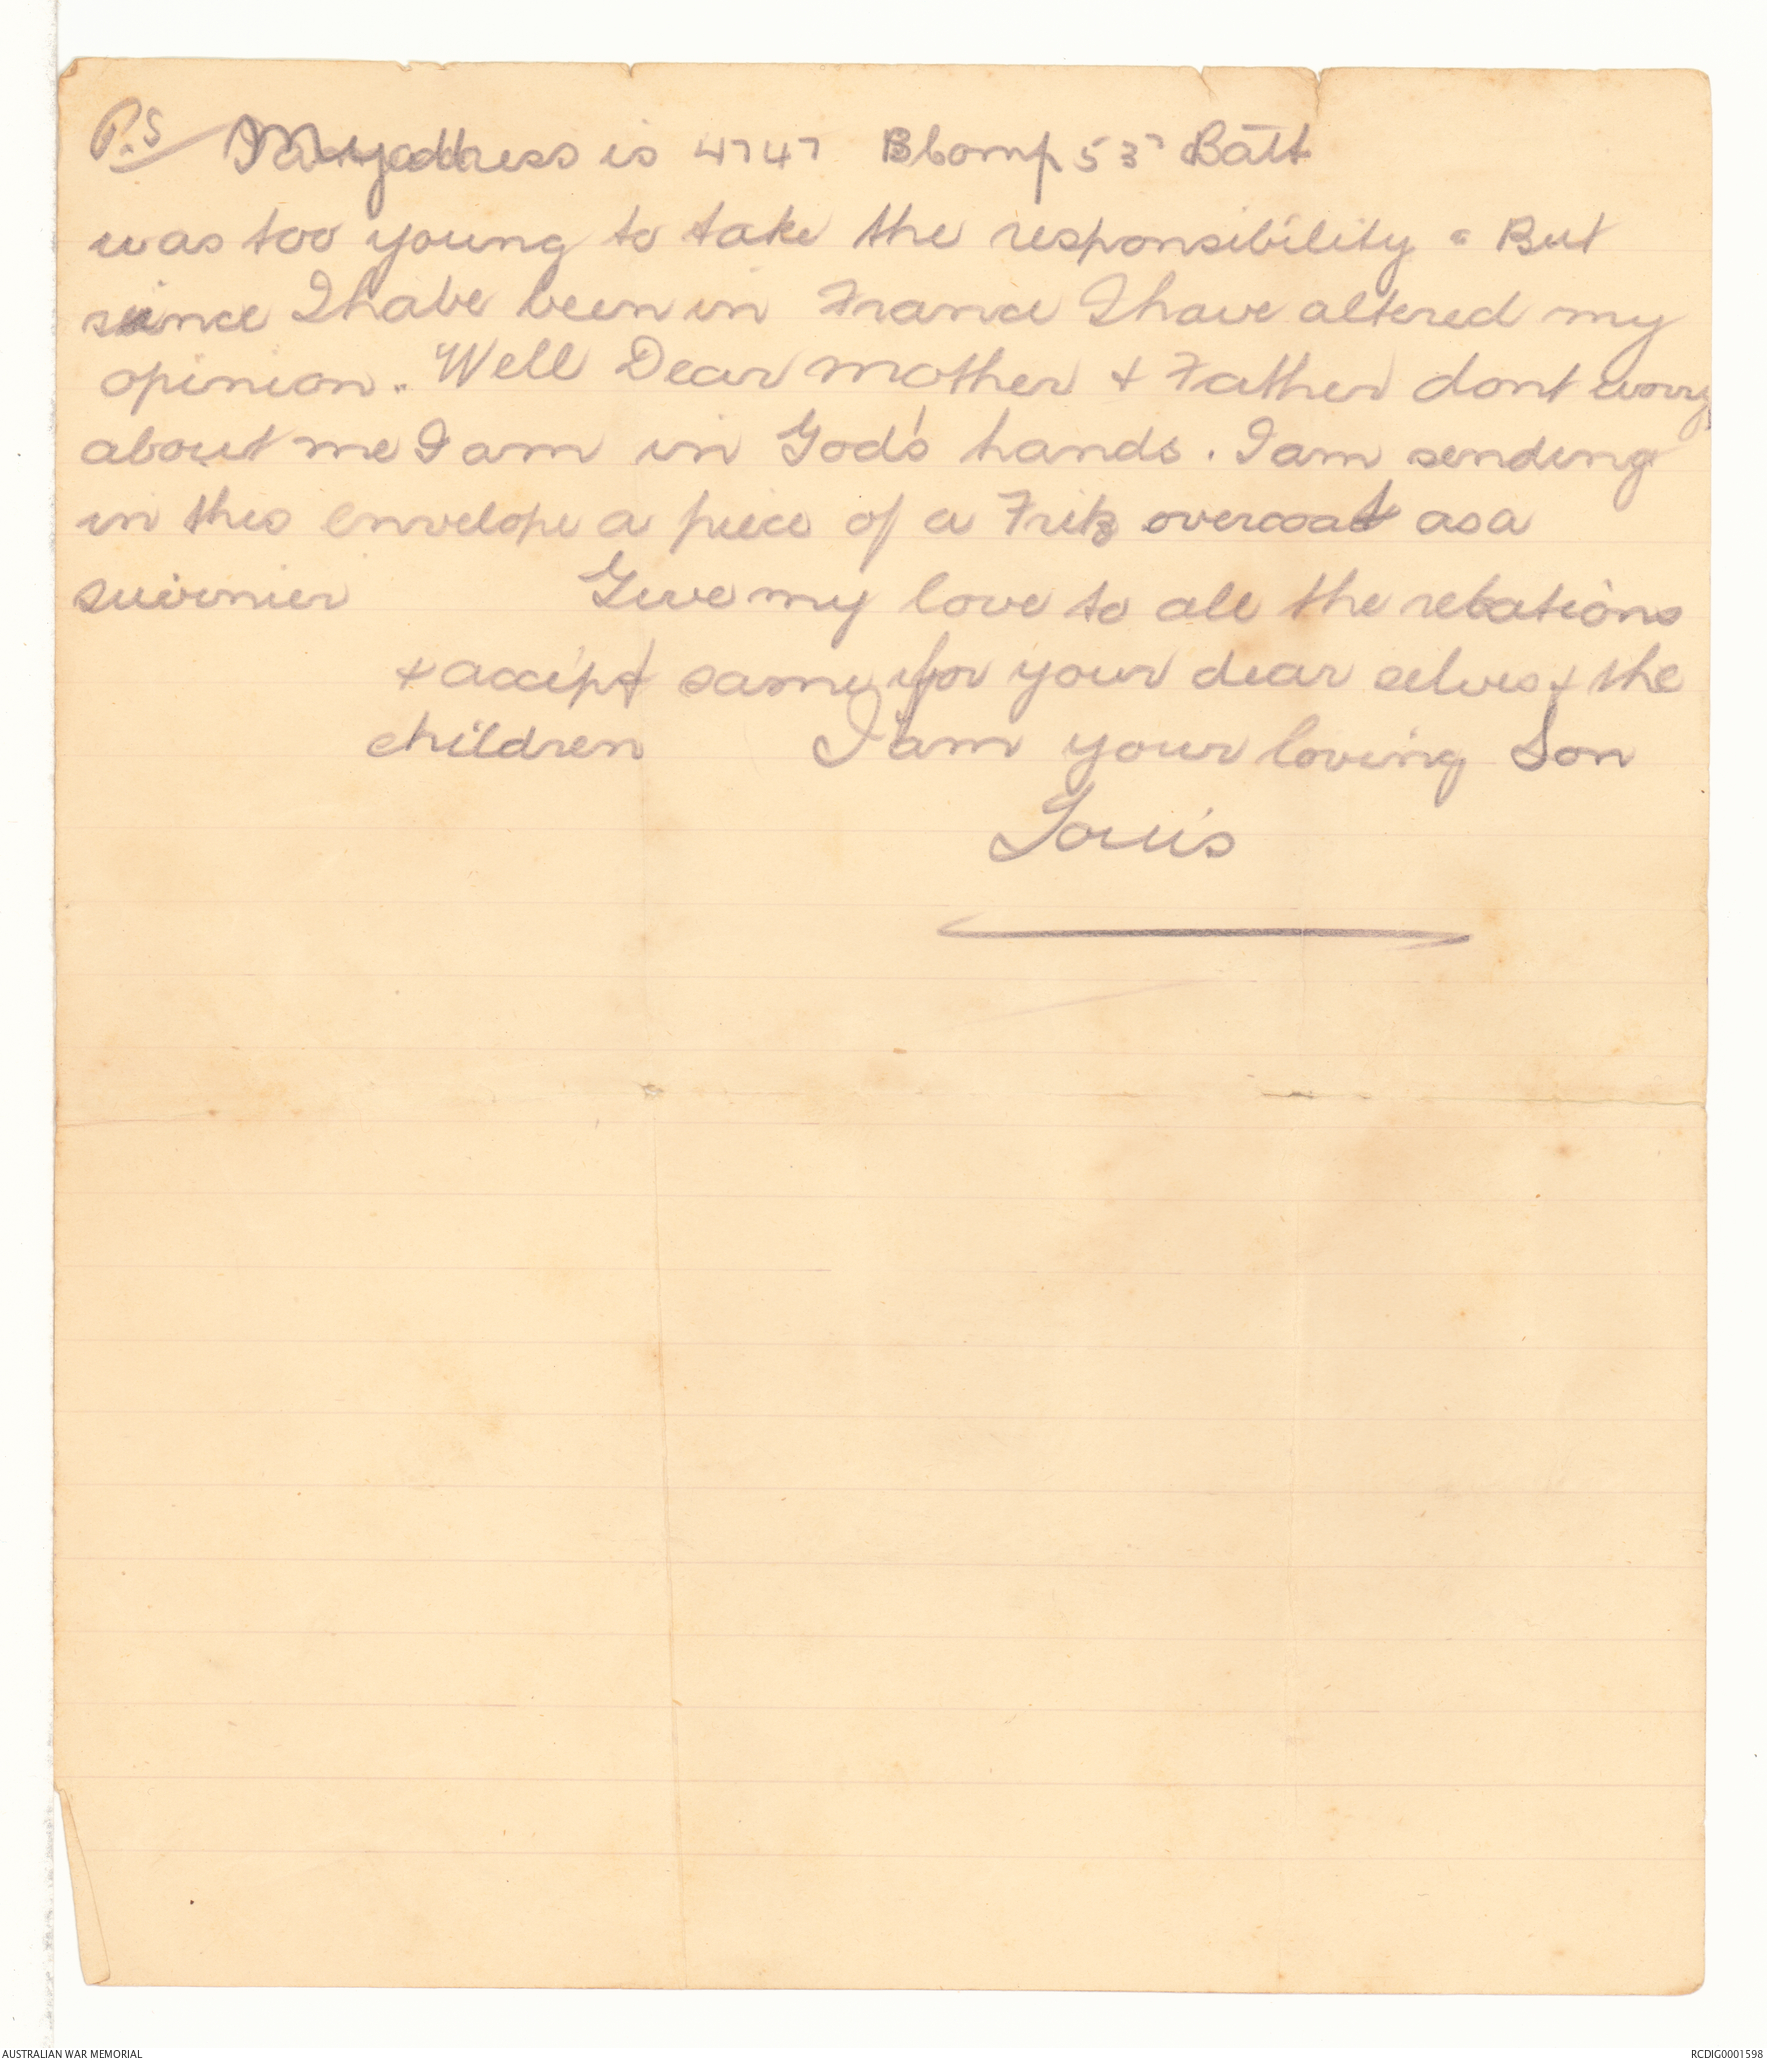 P.S/ My address is 4747 B Comp 53 Batt
was too young to take the responsibility. But
since I have been in France I have altered my
opinion. Well Dear mother + Father dont worry
about me I am in God's hands. I am sending
in this envelope a piece of a Fritz overcoat as a
suivinier Give my love to all the relations
+ accept same for your dear selves + the
children I am your loving Son
Louis
AUSTRALIAN WAR MEMORIAL RCDIG0001598